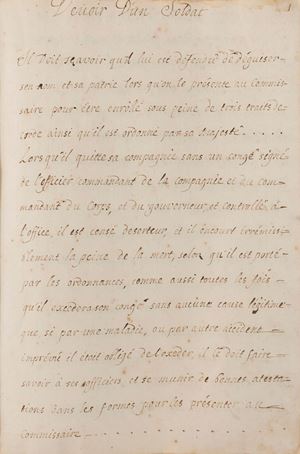 Devoir D'un Soldat
Il Doit sçavoir qu'il lui est deffendu de déguiser
son nom et sa patrie lors qu'on le présente au Commis-
saire pour être enrôlé sous peine de trois traits de
corde ainsi qu'il est ordonné par sa Majesté . . . . .
Lorsqu'il quitte sa compagnie sans un congé signé
de l'officier commandant de la compagnie et du com-
mandant du Corps, et du gouverneur, et controllé à
l'office, il est censé deserteur, et il encourt irrémis-
siblement la peine de la mort, selon qu'il est porté
par les ordonnances, comme aussi toutes les fois
qu'il excédera son congé sans aucune cause légitime
que si par une maladie, ou par autre accident
imprévû il étoit obligé de l'excéder, il le doit faire
savoir à ses officiers, et se munir de bonnes atesta-
tions dans les formes pour les présenter au
Commissaire